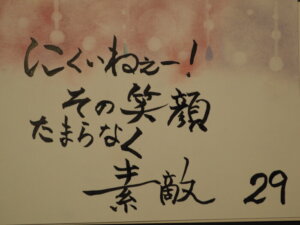 にくいねぇー!
その笑顔
たまらなく
素敵
29